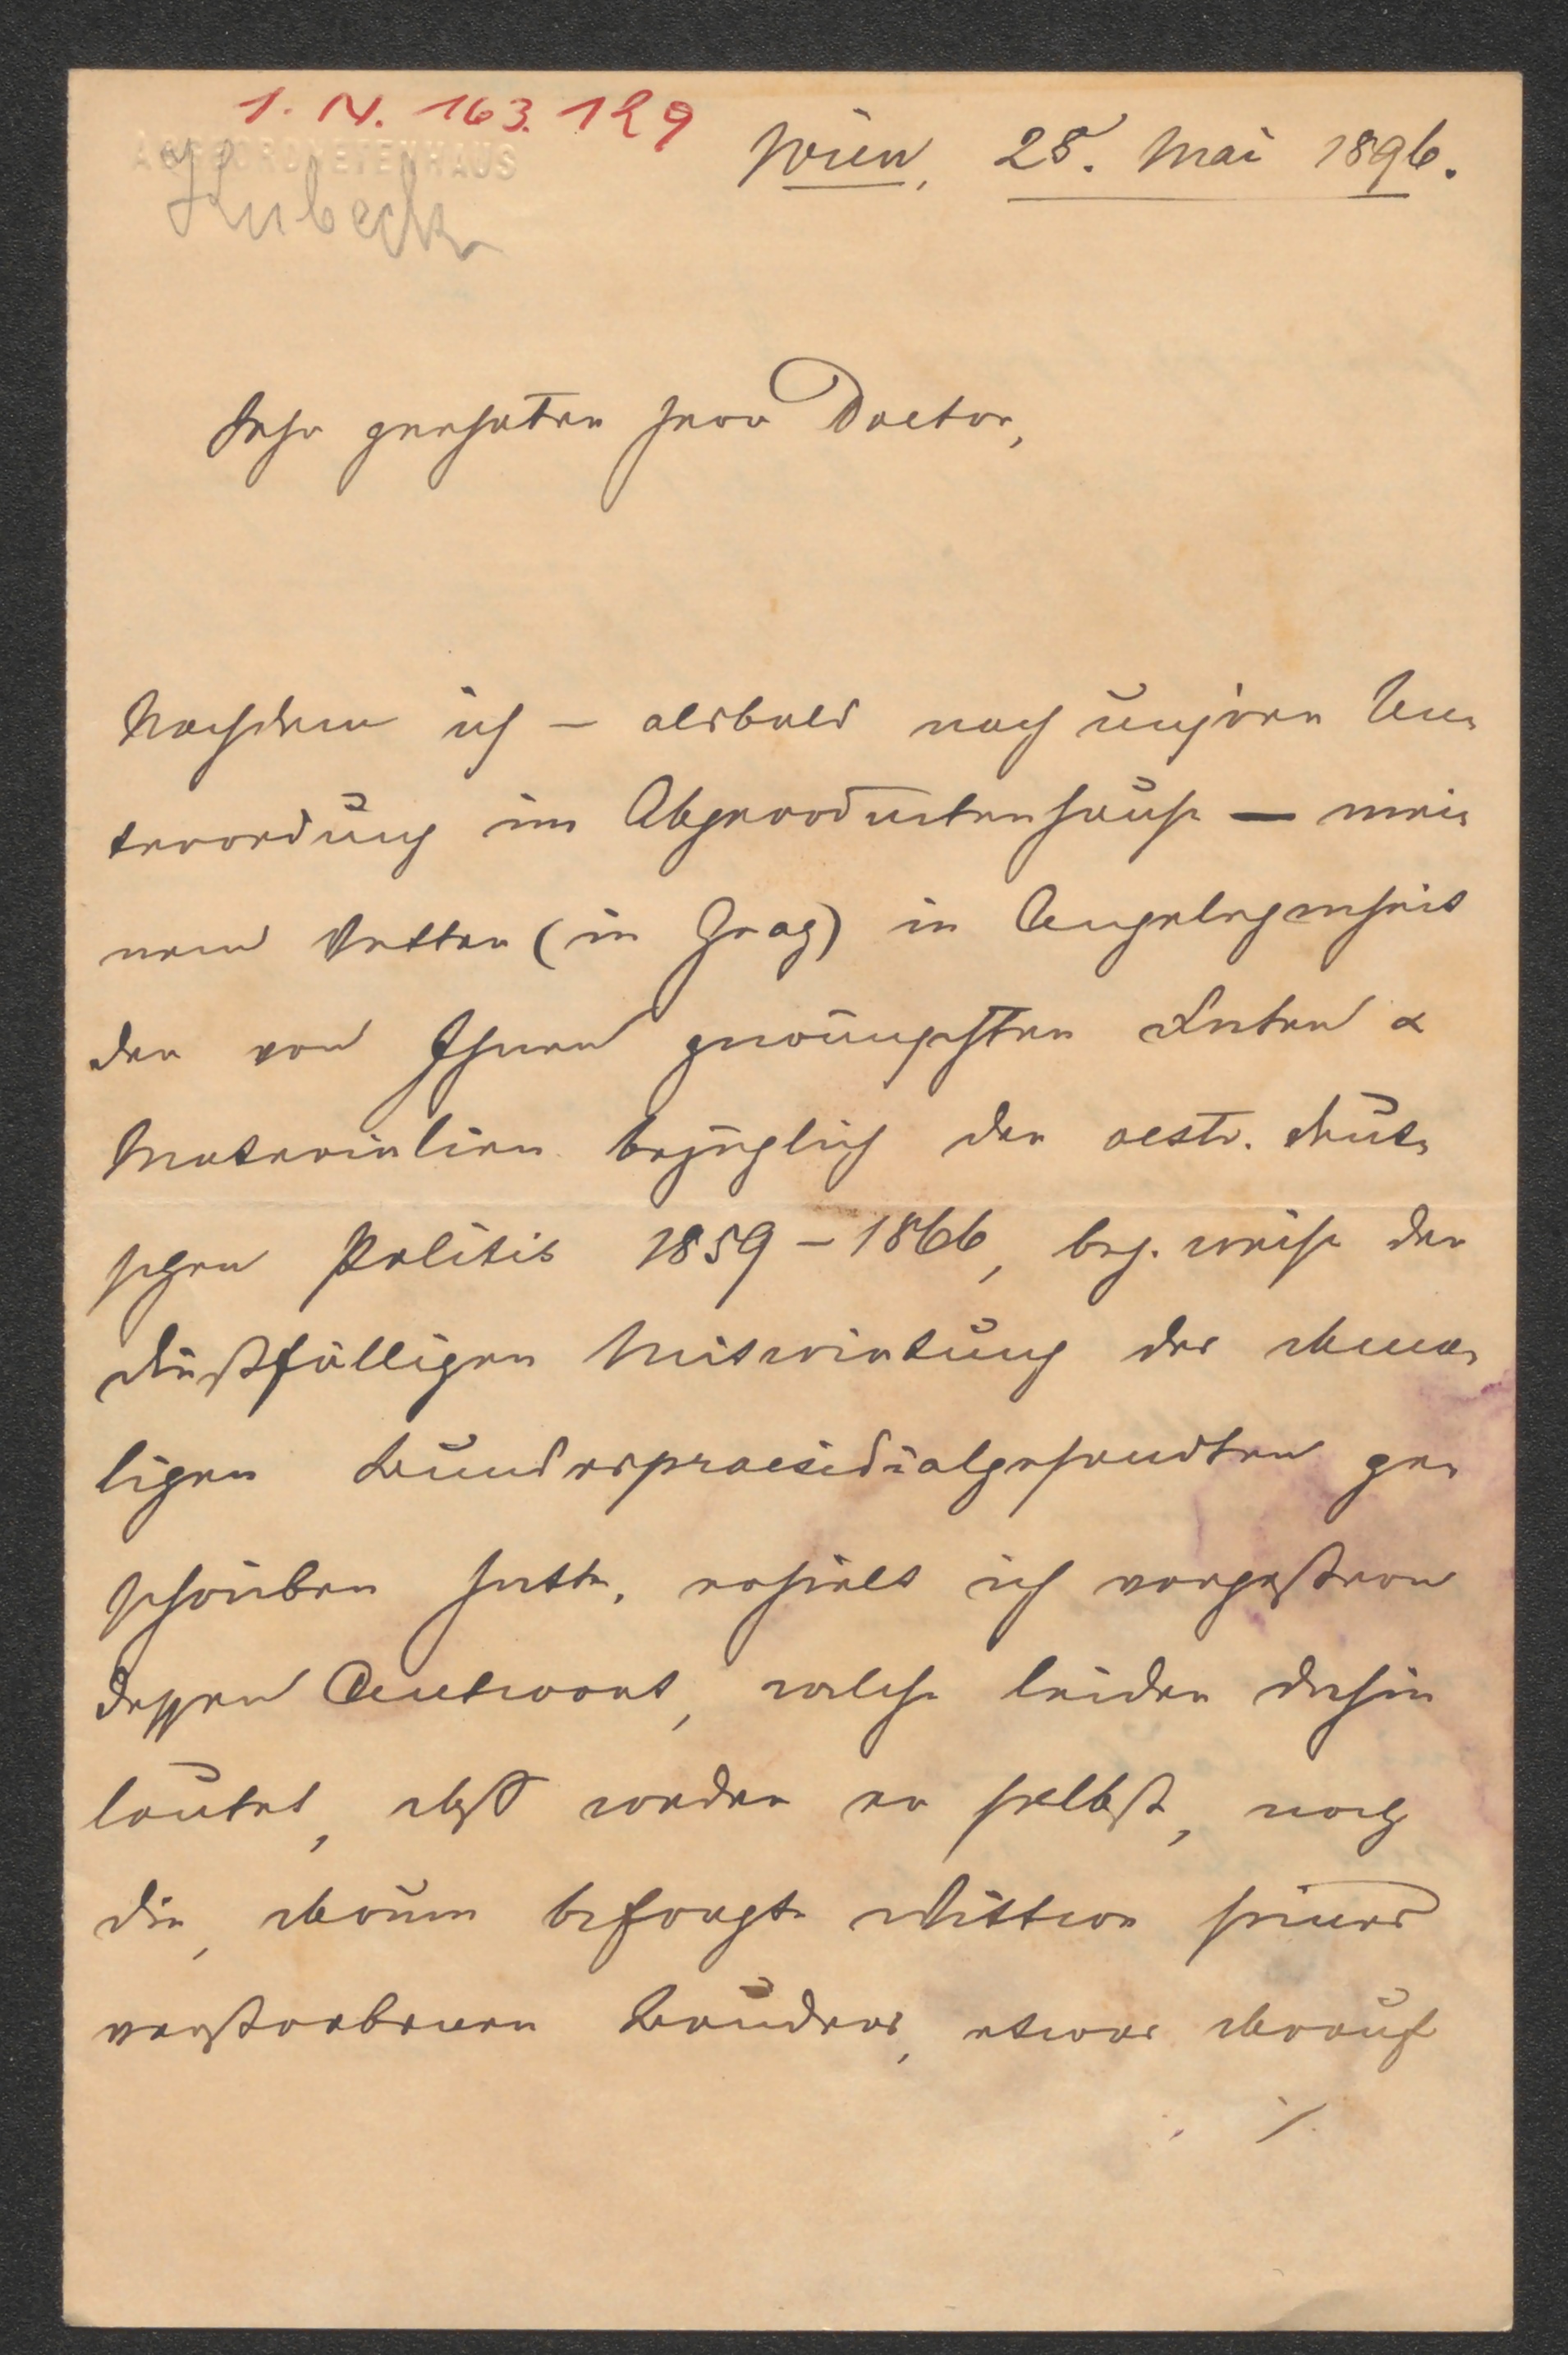 I. N. 163.129
ABGEORDNETENHAUS
Kubeck
Wien, 28. Mai 1896.
Sehr geehrter Herr Doctor,
Nachdem ich – alsbald nach unserer Un-
terredung im Abgeordnetenhause – mei-
nem Vetter (in Graz) in Angelegenheit
der von Ihnen gewünschten Daten &
Materialien bezüglich der oestr. deut-
schen Politik 1859–1866, bez. weise der
diesfälligen Mitwirkung des dama-
ligen Bundespraesidialgesandten ge-
schrieben hatte, erhielt ich vorgestern
dessen Antwort, welche leider dahin
lautet, daß weder er selbst, noch
die, darum befragte Wittwe seines
verstorbenen Bruders, etwas darauf
./.